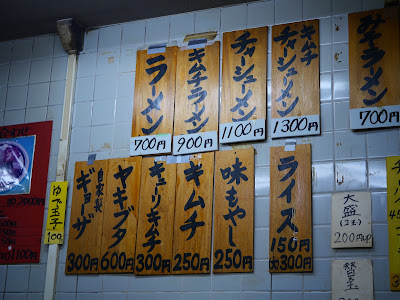 ラーメン
700円
キムチラーメン
900円
チャーシューメン
1100円
キムチチャーシューメン
1300円
みそラーメン
700円
ゆで玉子
100
自家製
ギョーザ
300円
ヤキブタ
600円
キューリキムチ
300円
キムチ
250円
味もやし
250円
ライス
150円
大300円
大盛
(2玉)
200円UP
替玉